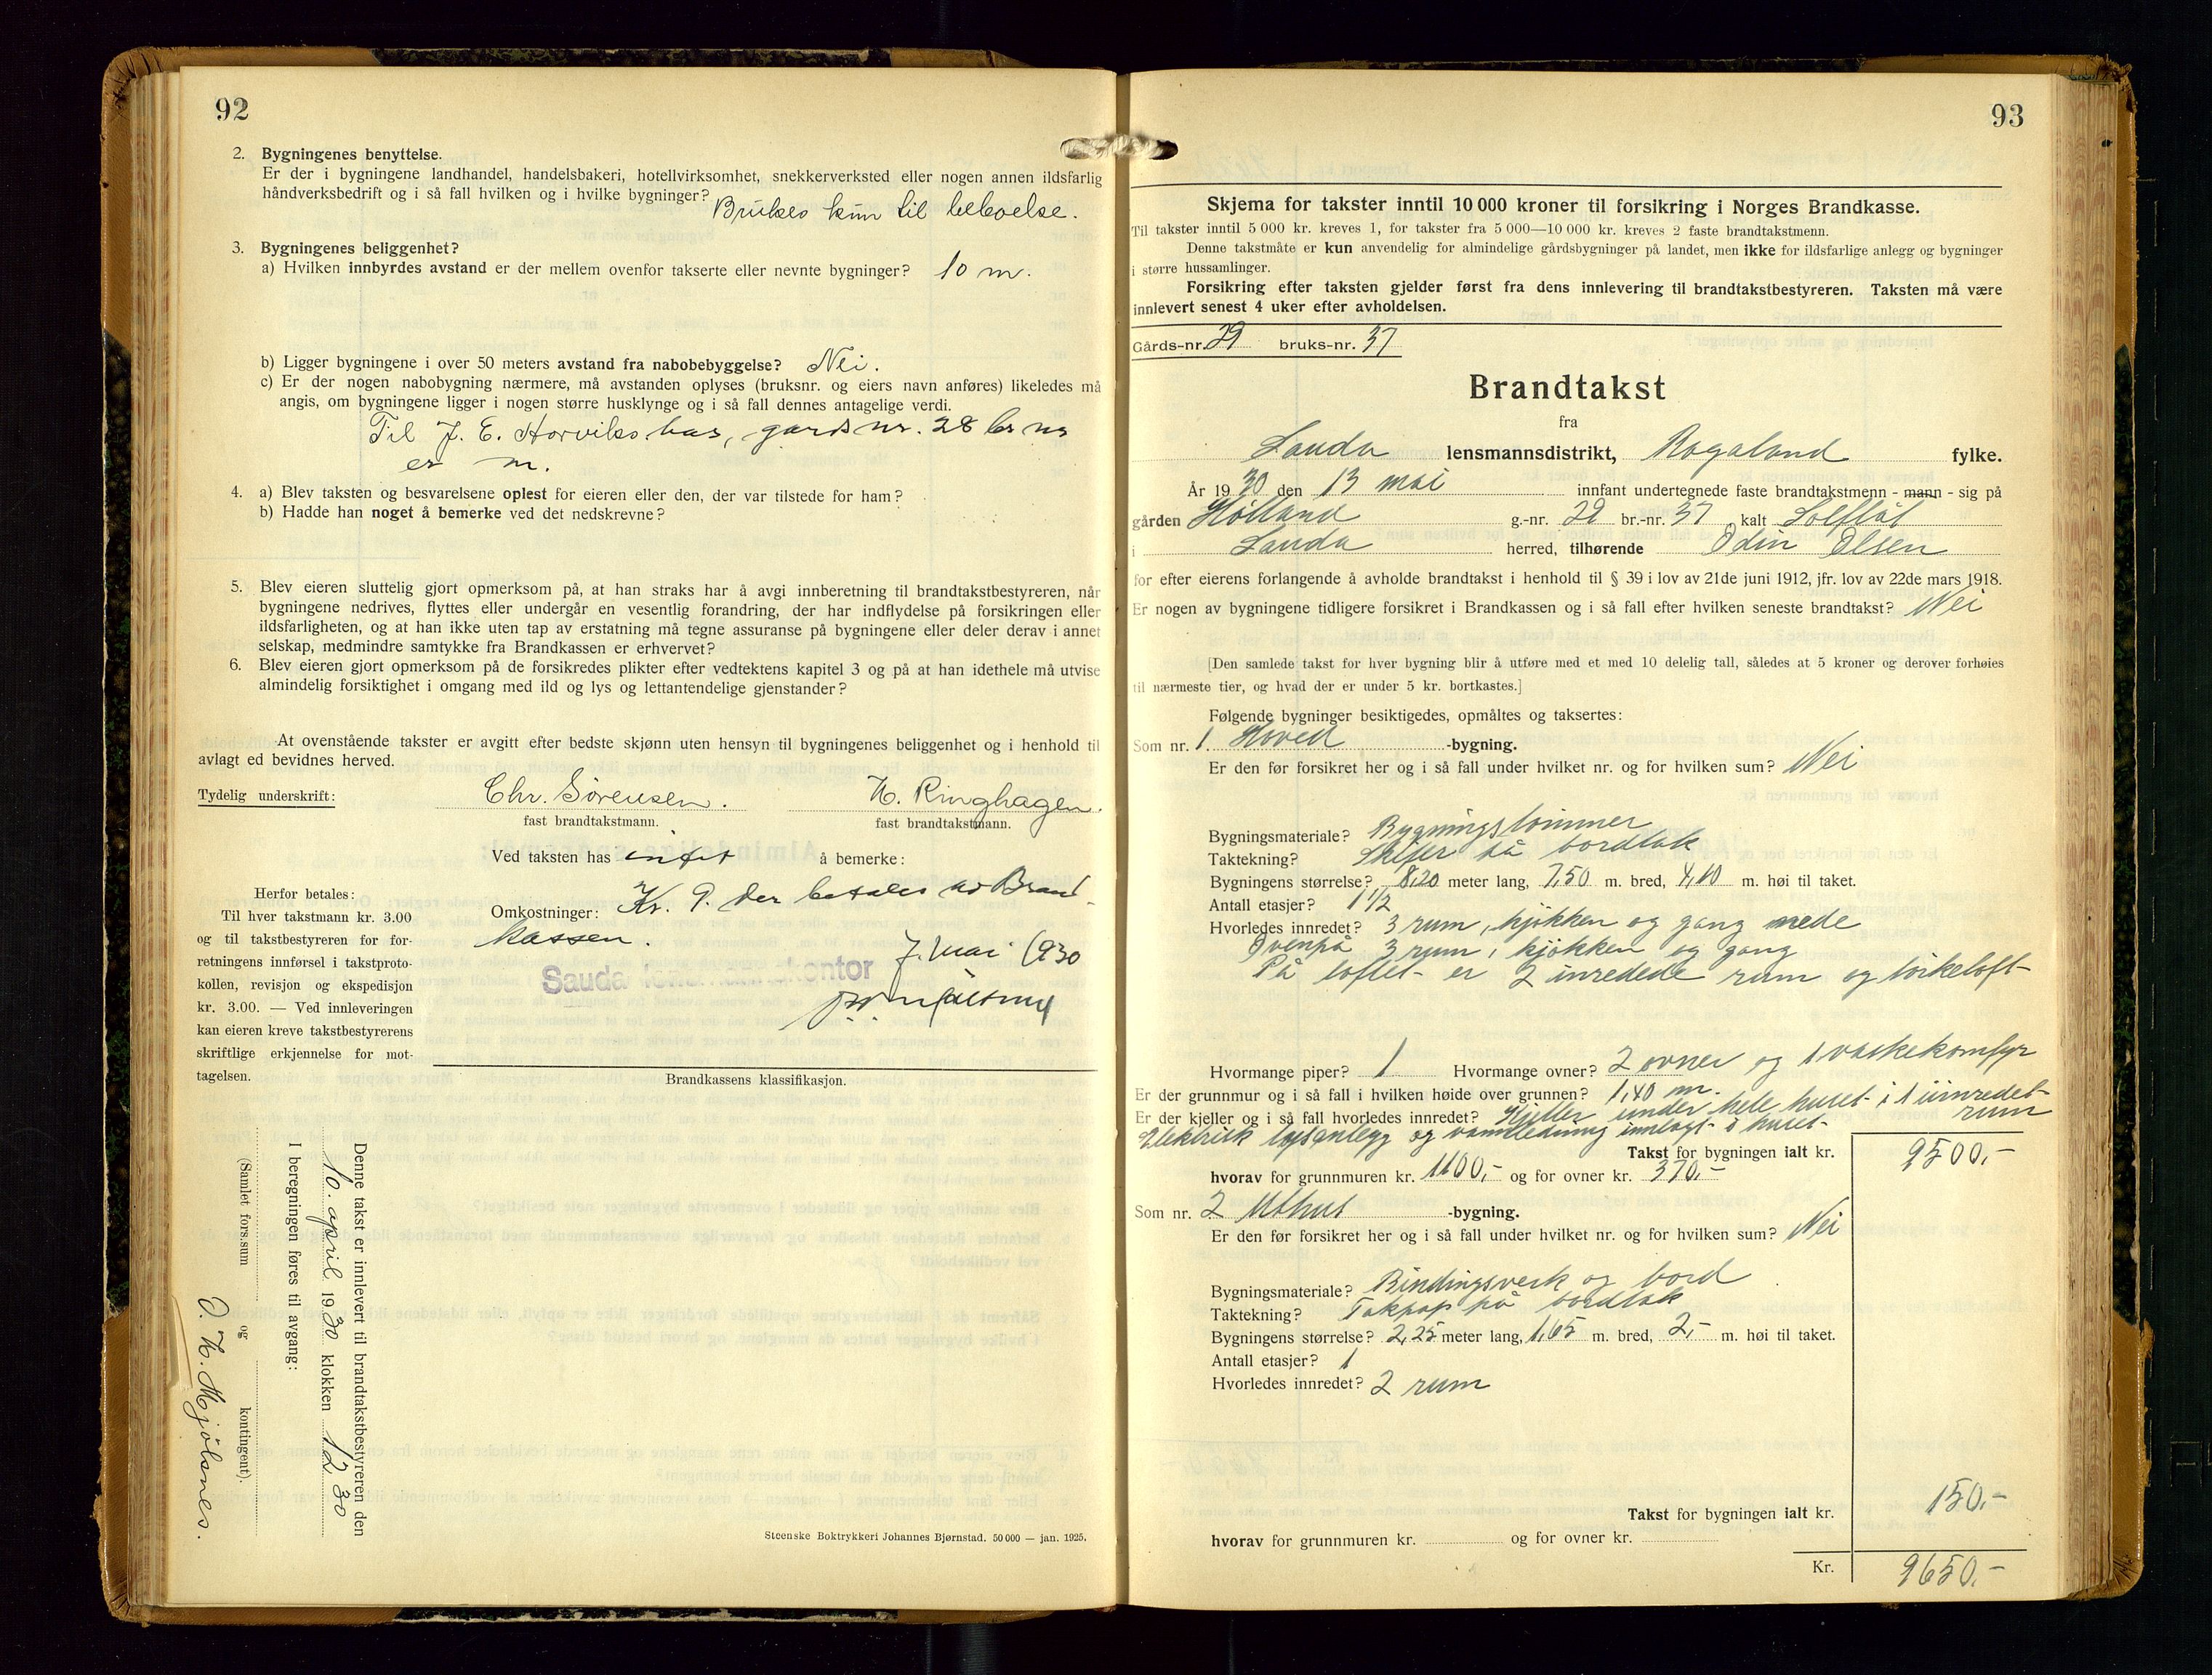 92
2. Bygningenes benyttelse.
Er der i bygningene landhandel, handelsbakeri, hotellvirksomhet, snekkerverksted eller nogen annen ildsfarlig
håndverksbedrift og i så fall hvilken og i hvilke bygninger?
Brukes kun til beboelse.
3. Bygningenes beliggenhet?
a) Hvilken innbyrdes avstand er der mellem ovenfor takserte eller nevnte bygninger? 10 m.
b) Ligger bygningene i over 50 meters avstand fra nabobebyggelse? Nei.
c) Er der nogen nabobygning nærmere, må avstanden oplyses (bruksnr. og eiers navn anføres) likeledes må
angis, om bygningene ligger i nogen større husklynge og i så fall dennes antagelige verdi.
Til J. E. Horviks hus, gards nr. 28 br nr
er m.
4. a) Blev taksten og besvarelsene oplest for eieren eller den, der var tilstede for ham?
b) Hadde han noget å bemerke ved det nedskrevne?
5. Blev eieren sluttelig gjort opmerksom på, at han straks har å avgi innberetning til brandtakstbestyreren, når
bygningene nedrives, flyttes eller undergår en vesentlig forandring, der har indflydelse på forsikringen eller
ildsfarligheten, og at han ikke uten tap av erstatning må tegne assuranse på bygningene eller deler derav i annet
selskap, medmindre samtykke fra Brandkassen er erhvervet?
6. Blev eieren gjort opmerksom på de forsikredes plikter efter vedtektens kapitel 3 og på at han idethele må utvise
almindelig forsiktighet i omgang med ild og lys og lettantendelige gjenstander?
At ovenstående takster er avgitt efter bedste skjønn uten hensyn til bygningenes beliggenhet og i henhold til
avlagt ed bevidnes herved.
Tydelig underskrift: Chr. Sörensen. H. Ringhagen.
fast brandtakstmann. fast brandtakstmann.
Ved taksten has intet å bemerke:
Omkostninger: Kr. 9. der betales av Brand-
kassen.
7. mai 1930
Sauda lensmannskontor
Herfor betales:
Til hver takstmann kr. 3.00
og til takstbestyreren for for-
retningens innførsel i takstproto-
kollen, revisjon og ekspedisjon
kr. 3.00. — Ved innleveringen
kan eieren kreve takstbestyrerens
skriftlige erkjennelse for mot-
tagelsen.
Brandkassens klassifikasjon.
Denne takst er innlevert til brandtakstbestyreren den
10. april 1930 klokken 12 30
I beregningen føres til avgang:
(Samlet fors.sum og kontingent).
O. H. Mjölsnes.
Steenske Boktrykkeri Johannes Bjørnstad. 50 000 — jan. 1925.
93
Skjema for takster inntil 10 000 kroner til forsikring i Norges Brandkasse.
Til takster inntil 5 000 kr. kreves 1, for takster fra 5 000—10 000 kr. kreves 2 faste brandtakstmenn.
Denne takstmåte er kun anvendelig for almindelige gårdsbygninger på landet, men ikke for ildsfarlige anlegg og bygninger
i større hussamlinger.
Forsikring efter taksten gjelder først fra dens innlevering til brandtakstbestyreren. Taksten må være
innlevert senest 4 uker efter avholdelsen.
Gårds-nr. 29 bruks-nr. 37
Brandtakst
fra
Sauda lensmannsdistrikt, Rogaland fylke.
År 1930 den 13 mai innfant undertegnede faste brandtakstmenn - mann - sig på
gården Hølland g.-nr. 29 br.-nr. 37 kalt Solflåt
i Sauda herred, tilhørende Odin Olsen
for efter eierens forlangende å avholde brandtakst i henhold til § 39 i lov av 21de juni 1912, jfr. lov av 22de mars 1918.
Er nogen av bygningene tidligere forsikret i Brandkassen og i så fall efter hvilken seneste brandtakst? Nei
[Den samlede takst for hver bygning blir å utføre med et med 10 delelig tall, således at 5 kroner og derover forhøies
til nærmeste tier, og hvad der er under 5 kr. bortkastes.]
Følgende bygninger besiktigedes, opmåltes og taksertes:
Som nr. 1. Hoved -bygning.
Er den før forsikret her og i så fall under hvilket nr. og for hvilken sum? Nei
Bygningsmateriale? Bygningstömmer
Taktekning? Skifer på bordtak
Bygningens størrelse? 8,20 meter lang, 7,50 m. bred, 4,40 m. høi til taket.
Antall etasjer? 1 1/2
Hvorledes innredet? 3 rum, kjökken og gang nede
Ovenpå 3 rum, kjökken og gang
På loftet er 2 inredede rum og törkeloft
Hvormange piper? 1 Hvormange ovner? 2 ovner og 1 vaskekomfyr
Er der grunnmur og i så fall i hvilken høide over grunnen? 1,40 m.
Er der kjeller og i så fall hvorledes innredet? Kjeller under hele huset i 1 uinredet
rum
Elektrisk lysanlegg og vannledning innlagt i huset
Takst for bygningen ialt kr. 9500,-
hvorav for grunnmuren kr. 1100,- og for ovner kr. 370,-
Som nr. 2 Uthus -bygning.
Er den før forsikret her og i så fall under hvilket nr. og for hvilken sum? Nei
Bygningsmateriale? Bindingsverk og bord
Taktekning? Takpap på bordtak
Bygningens størrelse? 2,25 meter lang, 1,65 m. bred, 2,- m. høi til taket.
Antall etasjer? 1
Hvorledes innredet? 2 rum
Takst for bygningen ialt kr. 150.-
hvorav for grunnmuren kr. og for ovner kr.
Kr. 9650.-